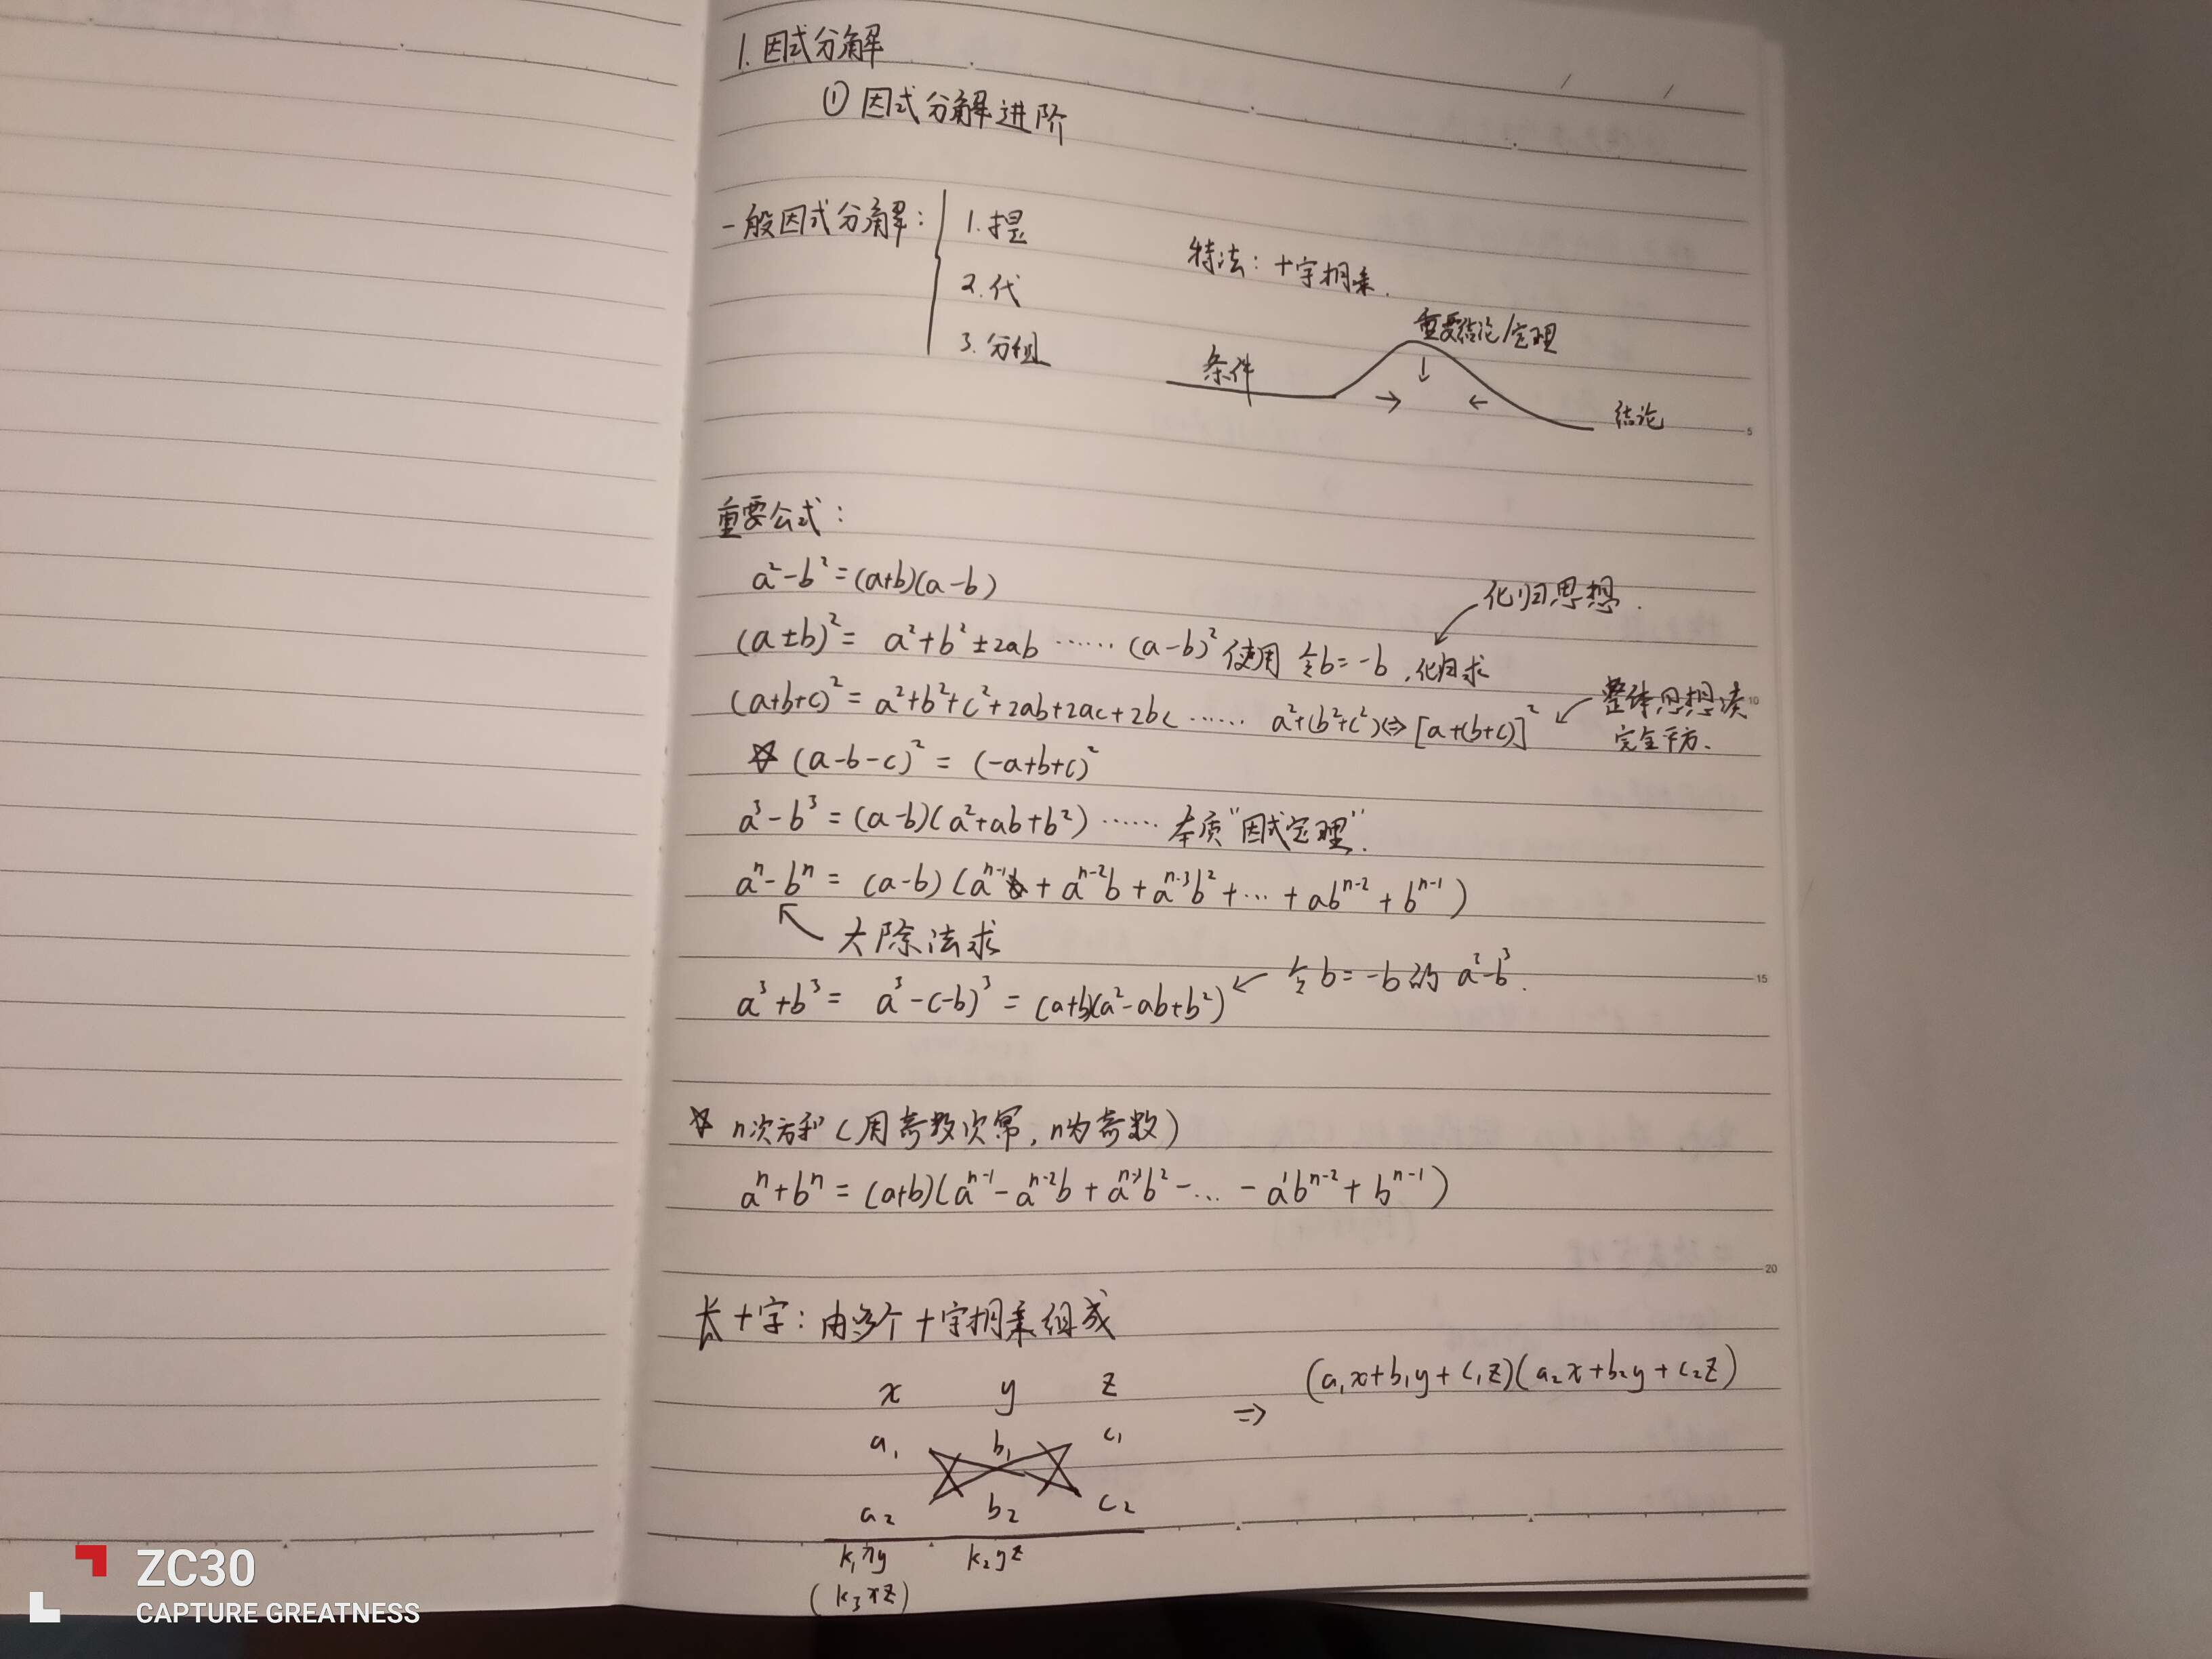 1. 因式分解
① 因式分解进阶
一般因式分解:
1. 提
2. 代
3. 分组
特法: 十字相乘.
条件
重要结论/定理
↓
→ ←
结论
5
重要公式:
a²-b²=(a+b)(a-b)
化归思想.
(a±b)²= a²+b²±2ab ······ (a-b)²使用 令b=-b,化归求
(a+b+c)²=a²+b²+c²+2ab+2ac+2bc ······ a²+(b²+c²)⇔[a+(b+c)]² ← 整体思想凑
完全平方.
10
☆ (a-b-c)² = (-a+b+c)²
a³-b³=(a-b)(a²+ab+b²) ······ 本质"因式定理".
aⁿ-bⁿ= (a-b)(aⁿ⁻¹+aⁿ⁻²b+aⁿ⁻³b²+···+abⁿ⁻²+bⁿ⁻¹)
大除法求
a³+b³= a³-(-b)³=(a+b)(a²-ab+b²) ← 令b=-b的a³-b³.
15
☆ n次方和(用奇数次幂,n为奇数)
aⁿ+bⁿ=(a+b)(aⁿ⁻¹-aⁿ⁻²b+aⁿ⁻³b²-...-a¹bⁿ⁻²+bⁿ⁻¹)
20
长十字: 由多个十字相乘组成
x y z
⇒ (a₁x+b₁y+c₁z)(a₂x+b₂y+c₂z)
a₁ b₁ c₁
a₂ b₂ c₂
k₁xy k₂yz
(k₃xz)
ZC30
CAPTURE GREATNESS